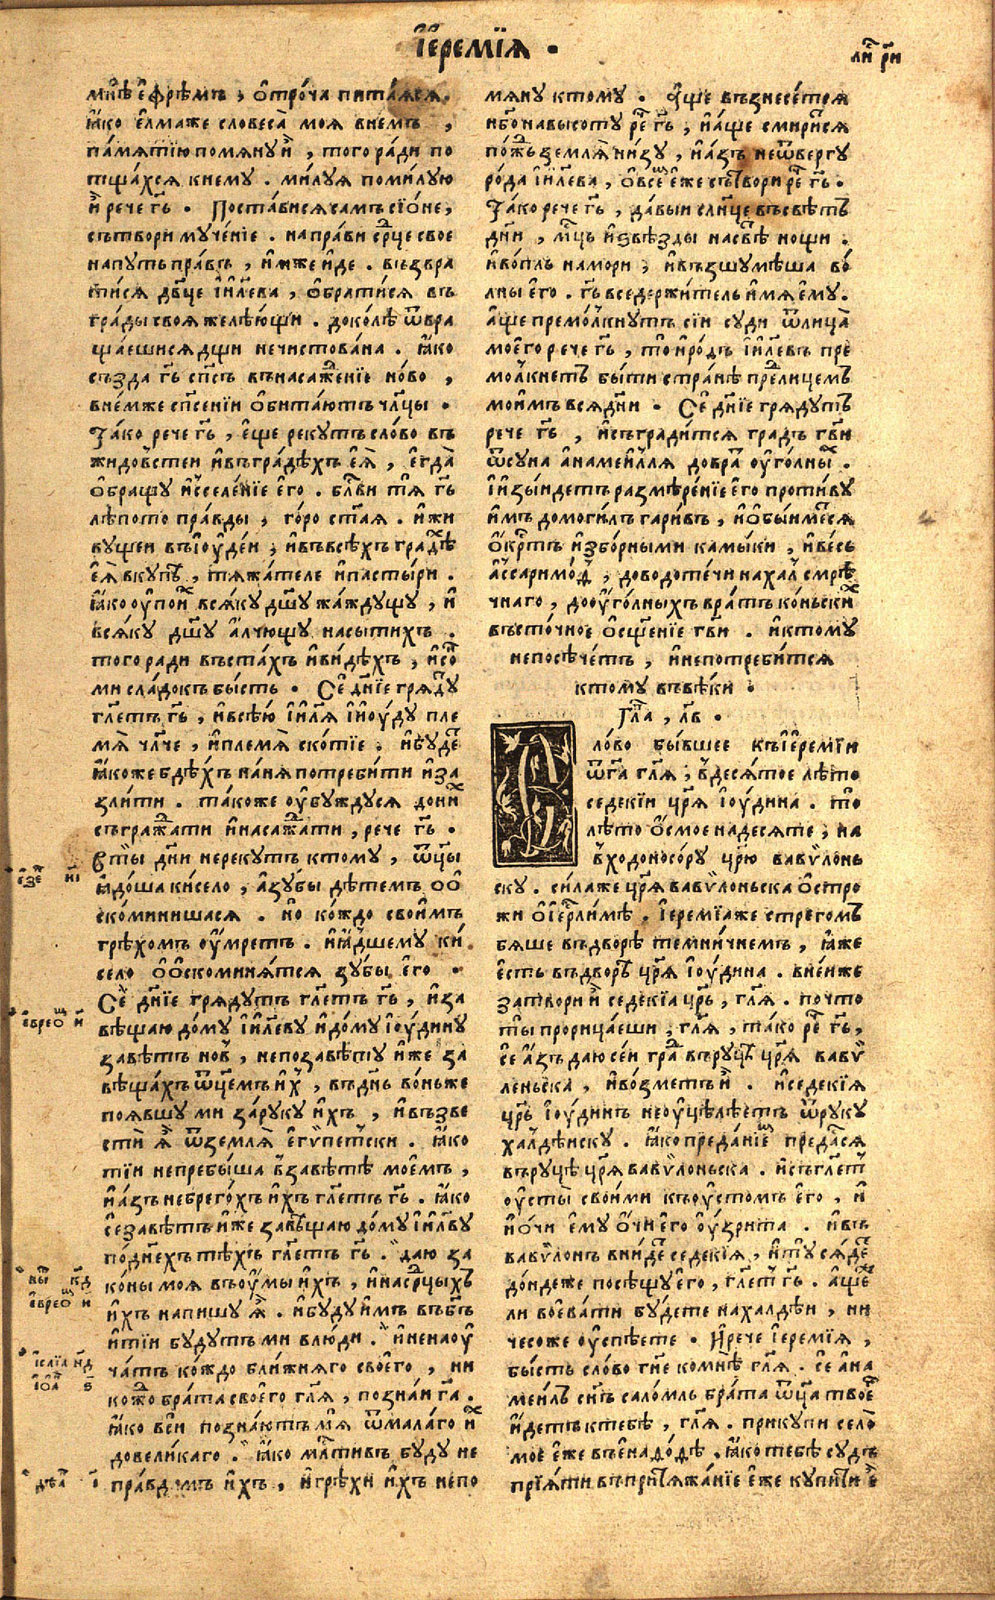 І҆еремїѧ .
ли҃ рн҃и
мнѣ е҆фре́мъ , ѻ҆троча питаѧсѧ .
ꙗ҆ко е҆лмаже словеса моѧ внемъ ,
па́мѧтїю помѧну и҆̀ , того ра́ди по
тща́хсѧ кнему . ми́луѧ поми́лую
и҆̀ рече гь҃ . Поста́висѧ самъ сїо́не ,
сътвори мꙋче́нїе . напра́ви ср҃це свое
напꙋть пра́въ , и҆мже и҆де . възвра
ти́сѧ дв҃це і҆и҃лева , ѻ҆брати́сѧ въ
гра́ды своѧ желѣ́ющи . доко́лѣ ѿвра
ща́ешисѧ дщи нечистова́на . ꙗ҆ко
създа гь҃ сп҃съ внасаже́нїе но́во ,
вне́мже сп҃сенїи ѻ҆бита́ютъ чл҃цы .
Та́ко рече гь҃ , е҆ще рекꙋтъ сло́во въ
жидо́встеи и҆въгра́дѣхъ е҆ѧ̀ , е҆гда̀
ѻ҆бращꙋ и҆сселе́нїе е҆го . бл҃ви тѧ гь҃
лѣпото пра́вды , го́ро ст҃аѧ . и҆жи
вꙋщеи въі҆ꙋде́и ; и҆въвсѣ́хъ градѣ
е҆ѧ̀ вкꙋпѣ , тѧжа́теле и҆пасты́ри .
ꙗ҆ко ѹ҆пои́ всѧ́кꙋ дш҃ꙋ жа́ждꙋщꙋ , и҆
всѧ́кꙋ дш҃ꙋ а҆́лчющꙋ насы́тихъ .
того ра́ди въста́хъ и҆ви́дѣхъ , и҆со́
ми сла́докъ бысть . Се́ дн҃їе грѧдꙋ́
гл҃етъ гь҃ , и҆всѣ́ю і҆и҃лѧ и҆і҆ѹ́дꙋ пле
мѧ̀ чл҃че , и҆племѧ̀ ско́тїе . и҆бꙋде́
ꙗ҆коже бдѣ́хъ на́нѧ потреби́ти и҆за
зли́ти . та́коже ѹ҆бꙋждꙋсѧ дони́
съгража́ти и҆насажа́ти , рече гь҃ .
Вты̀ дн҃и нерекꙋтъ ктомꙋ , ѿц҃ы
ꙗ҆до́ша ки́село , а҆зꙋ́бы дѣтемъ ѻ҆ѻ҆
ско́минишасѧ . но ко́ждо свои́мъ
грѣхомъ ѹ҆́мретъ . и҆ꙗ҆́дшемꙋ ки́
село ѻ҆ѻ҆скоминѧ́тсѧ зꙋ́бы е҆го .
Се́ дн҃їе грѧдꙋтъ гл҃етъ гь҃ , и҆за
вѣща́ю до́мꙋ і҆и҃левꙋ и҆до́мꙋ і҆ѹ́динꙋ
завѣ́тъ но́въ , непозавѣ́тꙋ и҆же за
вѣща́хъ ѿц҃емъ и҆́хъ , въдн҃ь во́ньже
поѧвшꙋ ми за́рꙋкꙋ и҆хъ , и҆възве
стѝ ѧ҆̀ ѿземлѧ̀ е҆гѵ́петски . ꙗ҆ко
ті́и непребы́ша взавѣ́тѣ мое́мъ ,
и҆а҆́зъ небрего́хъ и҆́хъ гл҃етъ гь҃ . ꙗ҆ко
се́завѣтъ и҆́же завѣща́ю до́мꙋ і҆и҃лвꙋ
подн҃ехъ тѣ́хъ гл҃етъ гь҃ . даю за
ко́ны моѧ въѹ҆мы̀ и҆́хъ , и҆насрдцыхъ
и҆хъ напишꙋ ѧ҆̀ . и҆бꙋдꙋ и҆мъ въбг҃ъ
и҆ті́и бꙋ́дꙋтъ ми влю́ди . и҆ненаѹ
ча́тъ ко́ждо бли́жнѧго своего̀ , ни
кожо бра́та своего глѧ҃ , позна́и га҃ .
ꙗ҆ко всѝ позна́ютъ мѧ̀ ѿмала́го и҆
довели́каго . ꙗ҆ко мл҃тивъ бꙋдꙋ не
пра́вдамъ и҆́хъ , и҆грѣхи и҆́хъ непо
е҆зе҃ ні҃
е҆вреѡ҃ и҃
вы̀ кд҃
е҆вреѡ҃ и҃
і҆саїа нд҃
і҆ѡ҃а ѕ҃
дѣа҃ і҃
мѧнꙋ ктомꙋ . А҆́ще възнесе́тсѧ
нб҃о навысотꙋ ре́ гь҃ , и҆а҆ще смири́сѧ
по́жъ землѧ̀ ни́зꙋ , и҆а҆́зъ неѿвергꙋ
ро́да і҆и҃лева , ѻ҆все́ е҆же сътвори ре́ гь҃ .
Та́ко рече гь҃ , да́выи сл҃нце въсвѣ́тъ
дн҃и , мц҃ъ и҆ѕвѣ́зды насвѣ̀ нощи .
и҆во́плъ намори ; и҆въшꙋмѣ́ша во́
лны е҆го . гь҃ вседержи́тель и҆мѧ е҆мꙋ .
а҆ще премо́лкнꙋтъ сїи сꙋди ѿлица̀
моего̀ рече гь҃ , то и҆ро́дъ і҆и҃левъ пре
мо́лкнетъ бы́ти стра́нѣ пре́лицемъ
мои́мъ всѧ дн҃и . Се́ дн҃їе грѧдꙋтъ
рече гь҃ , и҆съгради́тсѧ градъ гв҃и
ѿсꙋна а҆намеи́лѧ добра̀ ѹ҆го́лныи .
и҆изы́идетъ размѣ́ренїе е҆го проти́вꙋ
и҆мъ домоги́лъ гари́въ , и҆ѻ҆бы́имесѧ
ѻ҆крⷭ҇тъ и҆збо́рными камы́ки , и҆ве́сь
а҆ссаримо́д , доводоте́чи нахал́ смрѣ
чнаго , доѹ҆го́лныхъ вра́тъ ко́ньски
въсто́чное ѻ҆сщ҃е́нїе гв҃и . и҆ктомꙋ
непосѣче́тъ , и҆непотреби́тсѧ
ктомꙋ въвѣ́ки .
Гла҃ , лв҃ .
Сло́во бы́вшее къі҆еремі́и
ѿга҃ глѧ҃ ; вдесѧ́тое лѣто
седекі́и цр҃ѧ і҆ѹ́дина . то̀
лѣто ѻ҆смое на́десѧте ; на
входоносо́рꙋ цр҃ю вавѵ́лонь
скꙋ . си́лаже цр҃ѧ вавѵ́лоньска ѻ҆стро
жи ѻ҆і҆ер҃ли́мѣ . І҆еремїаже стрегомъ
бѧше въдво́рѣ темни́чнемъ , ꙗ҆же
е҆сть въдворѣ цр҃ѧ і҆ѹ́дина . вне́иже
затвори и҆̀ седекі́а цр҃ь , глѧ҃ . по́что
ты̀ прорица́еши , глѧ҃ , та́ко ре́ гь҃ ,
се́ а҆́зъ даю се́и гра́ въ рꙋцѣ цр҃ѧ вавѵ́
леньска , и҆во́зметъ и҆̀ . и҆седекі́ѧ
цр҃ь і҆ѹ́динъ неѹ҆цѣлѣ́етъ ѿрꙋкꙋ
халде́искꙋ . ꙗ҆ко преда́нїе преда́сѧ
върꙋцѣ цр҃ѧ вавѵ́лоньска . и҆съгл҃етъ
ѹ҆сты̀ свои́ми къѹ҆стомъ е҆го , и҆
и҆ѻ҆́чи е҆мꙋ ѻ҆́чи е҆го ѹ҆́зрита . и҆въ
вавѵ́лонъ вни́де седекі́ѧ , и҆тꙋ сѧ́де
до́ндеже посѣщꙋ е҆го , гл҃етъ гь҃ . а҆ще
ли воева́ти бꙋ́дете нахалде́и , ни
чесоже ѹ҆спѣете . И҆рече і҆еремі́ѧ ,
бы́сть сло́во гн҃е комнѣ̀ глѧ҃ . се́ а҆на
меи́лъ сн҃ъ сало́мль бра́та ѿц҃а твое
и҆детъ ктебѣ̀ , глѧ҃ . прикꙋпи село̀
мое е҆же въе҆на до́дѣ , ꙗ҆ко тебѣ сꙋдъ
прїѧ́ти въпритѧжа́нїе е҆же кꙋпи́ти е҆̀